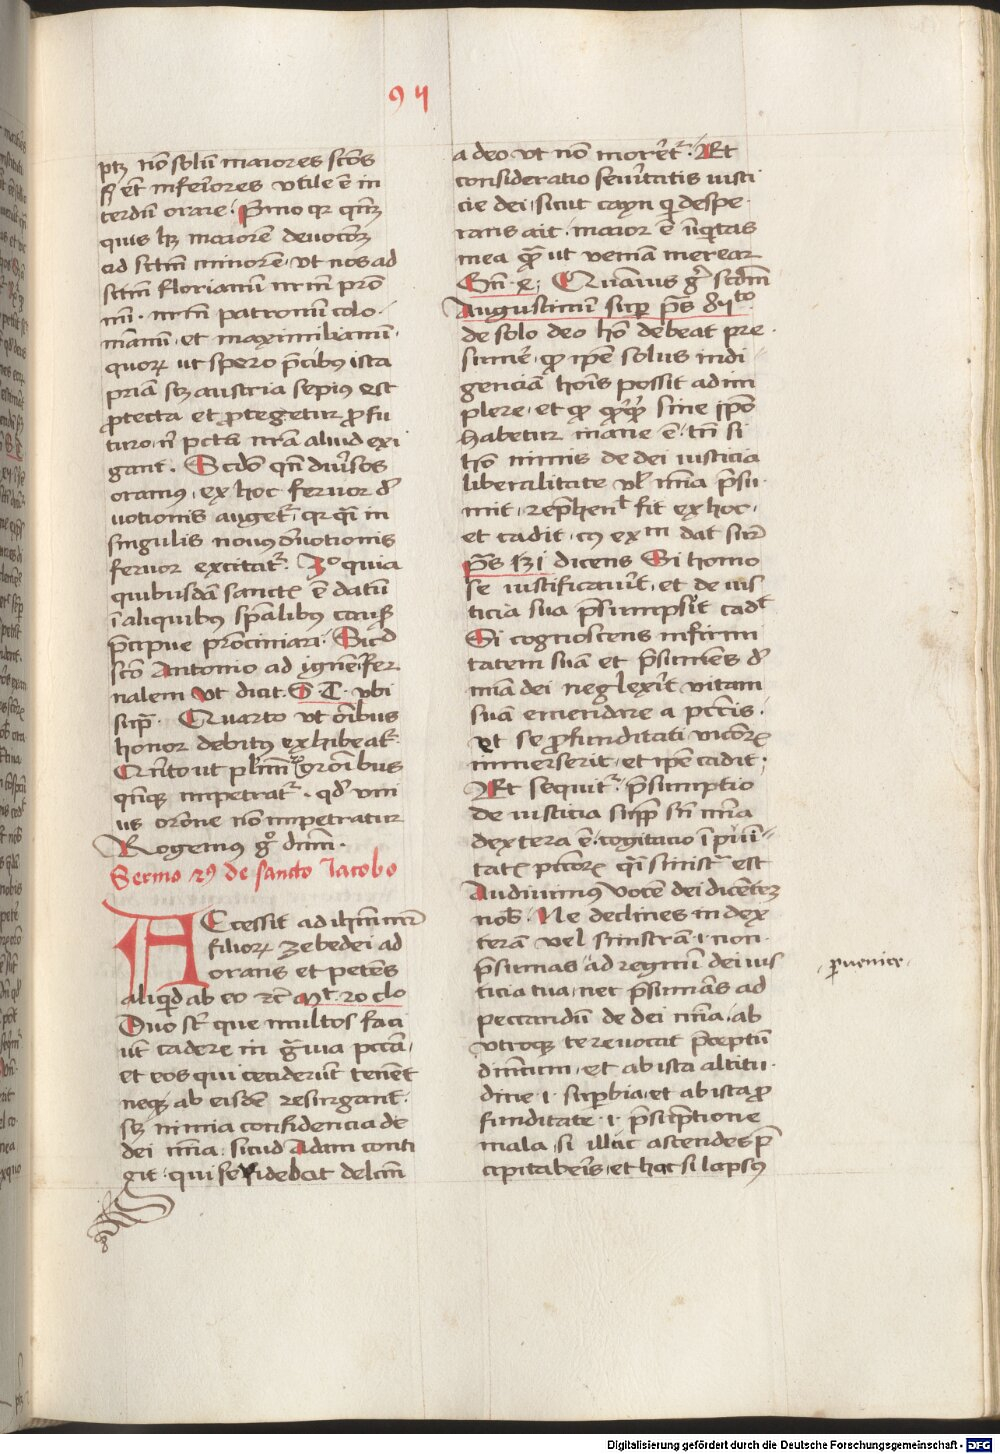 94
ptꝫ nō solū maiores scōs
sꝫ et̄ inferiores utile ē in
terdū orare. P̄mo qꝛ qn̄qꝫ
quis hꝫ maiorē deuocōꝫ
ad sctm̄ minorē, vt nos ad
sctm̄ florianū nr̄m pro
nr̄m patronū colo
manū, et maximilianū,
quoꝝ ut spero p̄cibus ista
pr̄ia sꝫ austria sepius est
ꝓtecta et ꝓtegetur ꝓ fu
turo, n̄ pctā nr̄a aliud exi
gant. Scd̄o qn̄ diu̾sos
oramꝰ, ex hoc feruor d̾
uotionis auget᷑, qꝛ qͣi in
singulis nouꝰ d̾uotionis
feruor excitat᷑. 3º quia
quibusdā sanctꝭ ē datū
ī aliquibus sp̄alibus causis
p̄cipue pr̄ociniari. Sicd
scō Antonio ad ignē īfer
nalem vt dicit S. T. vbi
sup̄. Quarto vt oībus
honor debitꝰ exhibeat᷑.
Qn̄to ut pl̄imoꝝ orōibus
qn̄qꝫ impetrat᷑, qd̾ vni
us orōne nō impetratur
Rogemus gͦ dnm̄.
Sermo 29 de sancto Jacobo
ACcessit ad ihm̄ mr̄
filioꝝ zebedei ad
orans et petēs
aliqͥd ab eo ꝛc̄ Mt. 20 cͦlo
Duo st᷑ que multos faci
unt cadere in gͣuia pccā,
et eos qui ceciderūt tenēt
neqꝫ ab eisdē resurgant.
sꝫ nimia confidencia de
dei mīa, sicud Adam conti
git, qui se videbat delcm̄
a deo vt nō moret᷑. Et
consideratio seu̾itatis iusti
cie dei, sicut cayn qͥ despe
rans ait, maior ē iniqͥtas
mea qͣ ut veniam merear
Gn̄. 4. Quāuis gͦ scdm̄
Augustinū sup̾ ps
de solo deo hō debeat pre
sumē, qꝛ ip̄e solus indi
genciā hoīs possit adim
plere, et qꝛ qͥcqͥd sine ip̄o
habetur inane ē, tn̄ si
hō nimis de dei iusticia
liberalitate vl̾ mīa p̄su
mit, repͪhen̄ fit ex hoc,
et cadit, dat sup̾
ps 31 dicens Si homo
se iustificauit̾, et de ius
ticia sua p̄sumpsit̾ cadꝫ
Si cognoscens infirmi
tatem suā et p̄sumēs d̾
mīa dei neglexit̾ vitam
suā emendare a pccis,
et se ꝓfunditati vicioꝝ
immerserit, et ip̄e cadit;
Et sequit᷑. p̄sumptio
de iusticia sup̾
dextera ē, cogitacio ī pūi
tatꝭ pctōꝝ qͣi sinistͣ est
Audiuimus vocē dei dicētꝫ
nob̄. Ne declines in dex
terā vel sinistrā .i. non
p̄sumas ad regnū dei ius
ticia tua, nec p̄sumas ad
peccandū de dei mīa, ab
vtroqꝫ te reuocat p̄ceptū
diuinum, et ab ista altitu
dine .i. sup̾bia, et ab ista ꝓ
funditate .i. p̄sūptione
mala, si illuc ascendes p̄
cipitaberis, et hac si lapsꝰ
ꝑuenire
Digitalisierung gefördert durch die Deutsche Forschungsgemeinschaft - DFG